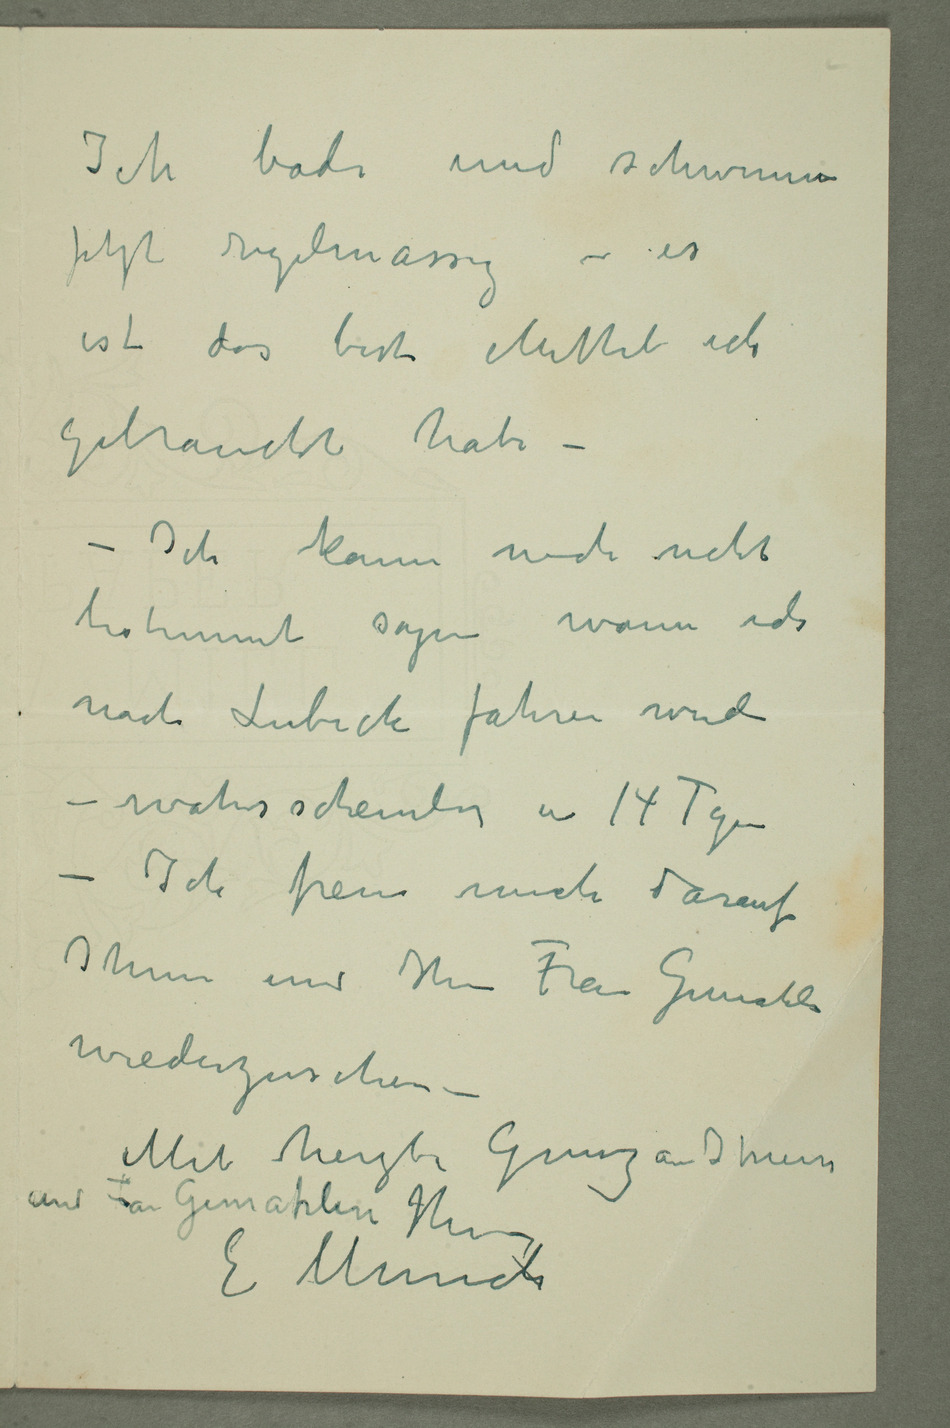 Ich bade und schwimme
jetzt regelmässig – es
ist das beste Mittel ich
gebraucht habe –
– Ich kann noch nicht
bestimmt sagen wann ich
nach Lubeck fahren werde
– wahrscheinlig in 14 Tagen
– Ich freue mich darauf
Ihnen und Ihre Frau Gemahlin
wiederzusehen –
Mit herzl. Grusz an Ihnen
und Frau Gemahlin Ihr
E Munch